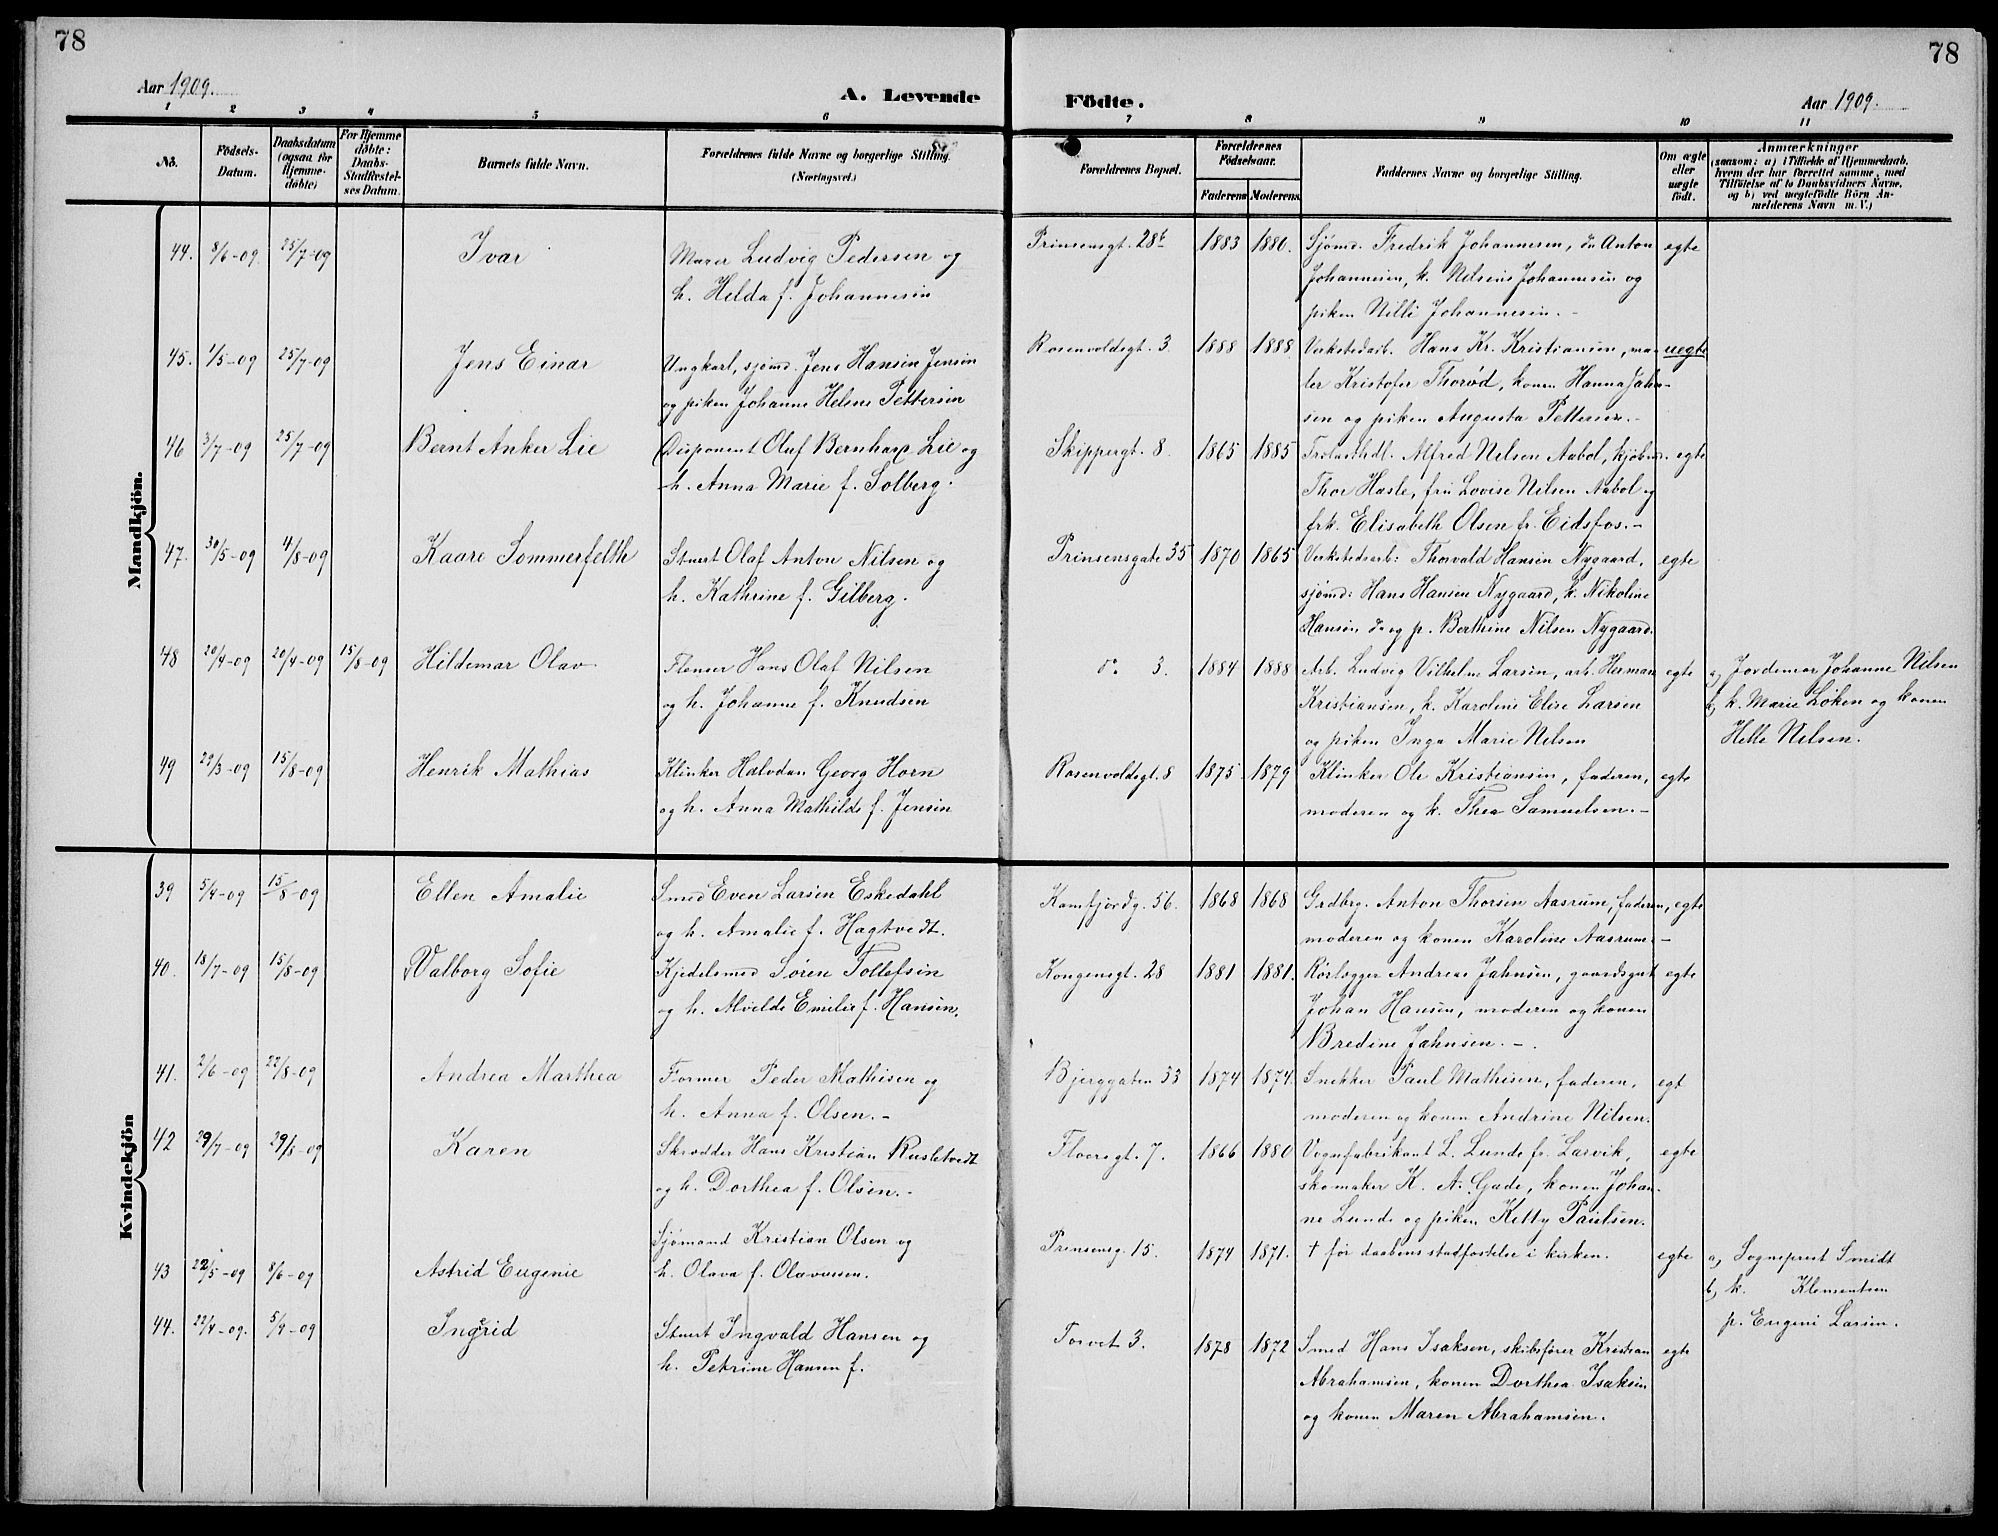 78
78
Aar 1909.
A. Levende
Födte.
Aar 1909.
1 2 3 4 5 6 7 8 9 10 11
No.
Födsels-
Datum.
Daabsdatum
(ogsaa for
Hjemme-
döbte)
For Hjemme
döbte:
Daabs-
Stadfæstel-
ses Datum.
Barnets fulde Navn.
Forældrenes fulde Navne og borgerlige Stilling.
(Næringsvei.)
Forældrenes Bopæl.
Forældrenes
Födselsaar.
Faderens
Moderens.
Faddernes Navne og borgerlige Stilling.
Om ægte
eller
uægte
födt.
Anmærkninger
(saasom: a) i Tilfælde af Hjemmedaab,
hvem der har forrettet samme, med
Tilföielse af to Daabsvidners Navne,
og b) ved uægtefödte Börn An-
melderens Navn m. V.)
Mandkjön.
44. 8/6-09. 25/7-09 Ivar
Murer Ludvig Pedersen og
h. Hilda f. Johannesen
Prinsensgt. 28b 1883 1880.
Sjømd. Fredrik Johannesen, do Anton
Johannesen, k. Nilsine Johannesen og
piken Nilli Johannesen.-
egte
45. 1/5-09 25/7-09 Jens Einar
Ungkarl, sjømd. Jens Hansen Jensen
og piken Johanne Helene Pettersen
Rosenvoldsgt. 3. 1888 1888
Verkstedarb. Hans Kr. Kristiansen, ma-
ler Kristofer Thorød, konen Hanna Jahn-
sen og piken Augusta Pettersen.-
uegte
46 3/7-09 25/7-09 Bernt Anker Lie
Disponent Olaf Bernhard Lie og
h. Anna Marie f. Solberg.
Skippergt. 8. 1865 1885
Trælasthdl. Alfred Nilsen Aabol, kjøbmd.
Thor Hasle, fru Lovise Nilsen Aabol og
frk. Elisabeth Olsen fr. Eidsfos.-
egte
47. 30/5-09 4/8-09 Kaare Sommerfelth
Stuert Olaf Anton Nilsen og
h. Kathrine f. Gilberg.
Prinsensgate 35 1870 1865
Verkstedsarb: Thorvald Hansen Nygaard,
sjømd: Hans Hansen Nygaard, k. Nikoline
Hansen do og p. Berthine Nilsen Nygaard.
egte
48 20/4-09 20/4-09 15/8-09 Hildemar Olav
Flenser Hans Olaf Nilsen
og h. Johanne f. Knudsen
do 3. 1884 1888
Arb. Ludvig Vilhelm Larsen, arb. Herman
Kristiansen, k. Karoline Elise Larsen
og piken Inga Marie Nilsen
egte
a) Jordemor Johanne Nilsen
b) k. Marie Løken og konen
Helle Nilsen.
49 29/3-09 15/8-09 Henrik Mathias
Klinker Halvdan Georg Horn
og h. Anna Mathilde f. Jensen
Rosenvoldsgt. 8 1875 1879
Klinker Ole Kristiansen, faderen,
moderen og k. Thea Samuelsen.-
egte
Kvindekjön
39 5/4-09 15/8-09 Ellen Amalie
Smed Even Larsen Eskedahl
og h. Amalie f. Hagtvedt.
Kamfjordg. 56. 1868 1868
Grdbrg. Anton Thorsen Aasrum, faderen,
moderen og konen Karoline Aasrum.-
egte
40. 18/7-09 15/8-09 Valborg Sofie
Kjedelsmed Søren Tollefsen
og h. Alvilde Emilie f. Hansen.
Kongensgt. 28 1881 1881.
Rørlægger Andreas Jahnsen, gaardsgut
Johan Hansen, moderen og konen
Bredine Jahnsen.-.
egte
41. 2/6-09 22/8-09 Andrea Marthea
Former Peder Mathisen og
h. Anna f. Olsen.-
Bjerggaten 33 1874 1874.
Snekker Paul Mathisen, faderen,
moderen og konen Andrine Nilsen.
egt
42 29/7-09 29/8-09 Karen
Skrædder Hans Kristian Rusletvedt
og h. Dorthea f. Olsen.-
Floersgt. 7. 1866 1880
Vognfabrikant L. Lunde fr. Larvik,
skomaker K. A. Gade, konen Johan-
ne Lunde og piken Kitty Paulsen.
egte
43 22/5-09 8/6-09 Astrid Eugenie
Sjømand Kristian Olsen og
h. Olava f. Olavesen.
Prinsensg. 15. 1874 1871.
† før daabens stadfæstelse i kirken.
egte
a) Sogneprest Smidt
b) k. Klementsen
p. Eugeni Larsen.
44. 22/4-09. 5/9-09 Ingrid
Stuert Ingvald Hansen og
h. Petrine Hansen f.
Torvet 3. 1878 1872
Smed Hans Isaksen, skibsfører Kristian
Abrahamsen, konen Dorthea Isaksen
og konen Maren Abrahamsen.
egte